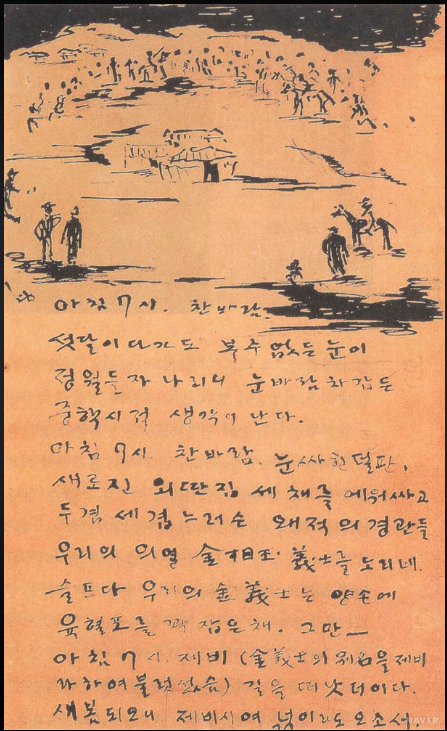 아침 7시. 찬바람.
섯달이 다가도 볼수 없든 눈이
정월들자 나리니 눈바람차갑든
중학시절 생각이 난다.
아침 7시. 찬바람. 눈싸힌 덜판,
새로진 외딴집 세채를 에워싸고
두겹 세겹 느러슨 왜적의 경관들
우리의 의열 金相玉 義士를 노리네.
슬프다 우리의 金義士는 양손에
육혈포를 꽉 잡은채. 그만—
아침 7시. 제비 (金義士의 別名을 제비
라하여 불렀었음) 길을 떠낫더이다.
새봄되오니 제비시여 넋이라도 오소서.
NAVER